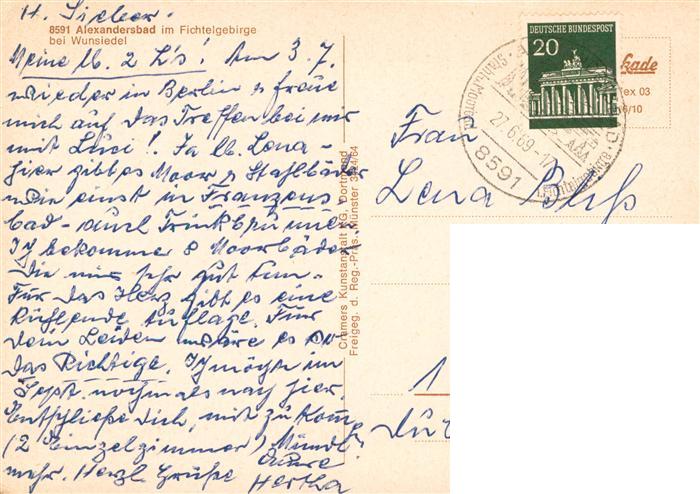 H. Sieber.
8591 Alexandersbad im Fichtelgebirge
bei Wunsiedel
Meine lb. 2 L's! Am 3. 7.
wieder in Berlin u freue
mich auf das Treffen bei mir
mit Luci! Ja lb. Lena-
hier gibt es Moor u Stahlbäder
wie einst in Franzens-
bad - auch Trinkbrunnen
Ich bekomme 8 Moorbäder
Die mir sehr gut tun-
Für das Herz gibt es eine
kühlende Auflage. Für
dein Leiden wäre es so
das Richtige. Ich möchte im
Sept. nochmals nach hier.
Entschließe Dich, mit zu kom̄
(2 Einzelzimmer) Mündl.
mehr. Herzl. Grüße Eure
Hertha
Cramers Kunstanstalt KG, Dortmund
Freigeg. d. Reg.-Präs. Münster
DEUTSCHE BUNDESPOST
20
27.6.69-17
8591
kade
ex 03
6/10
Frau
Lena
1